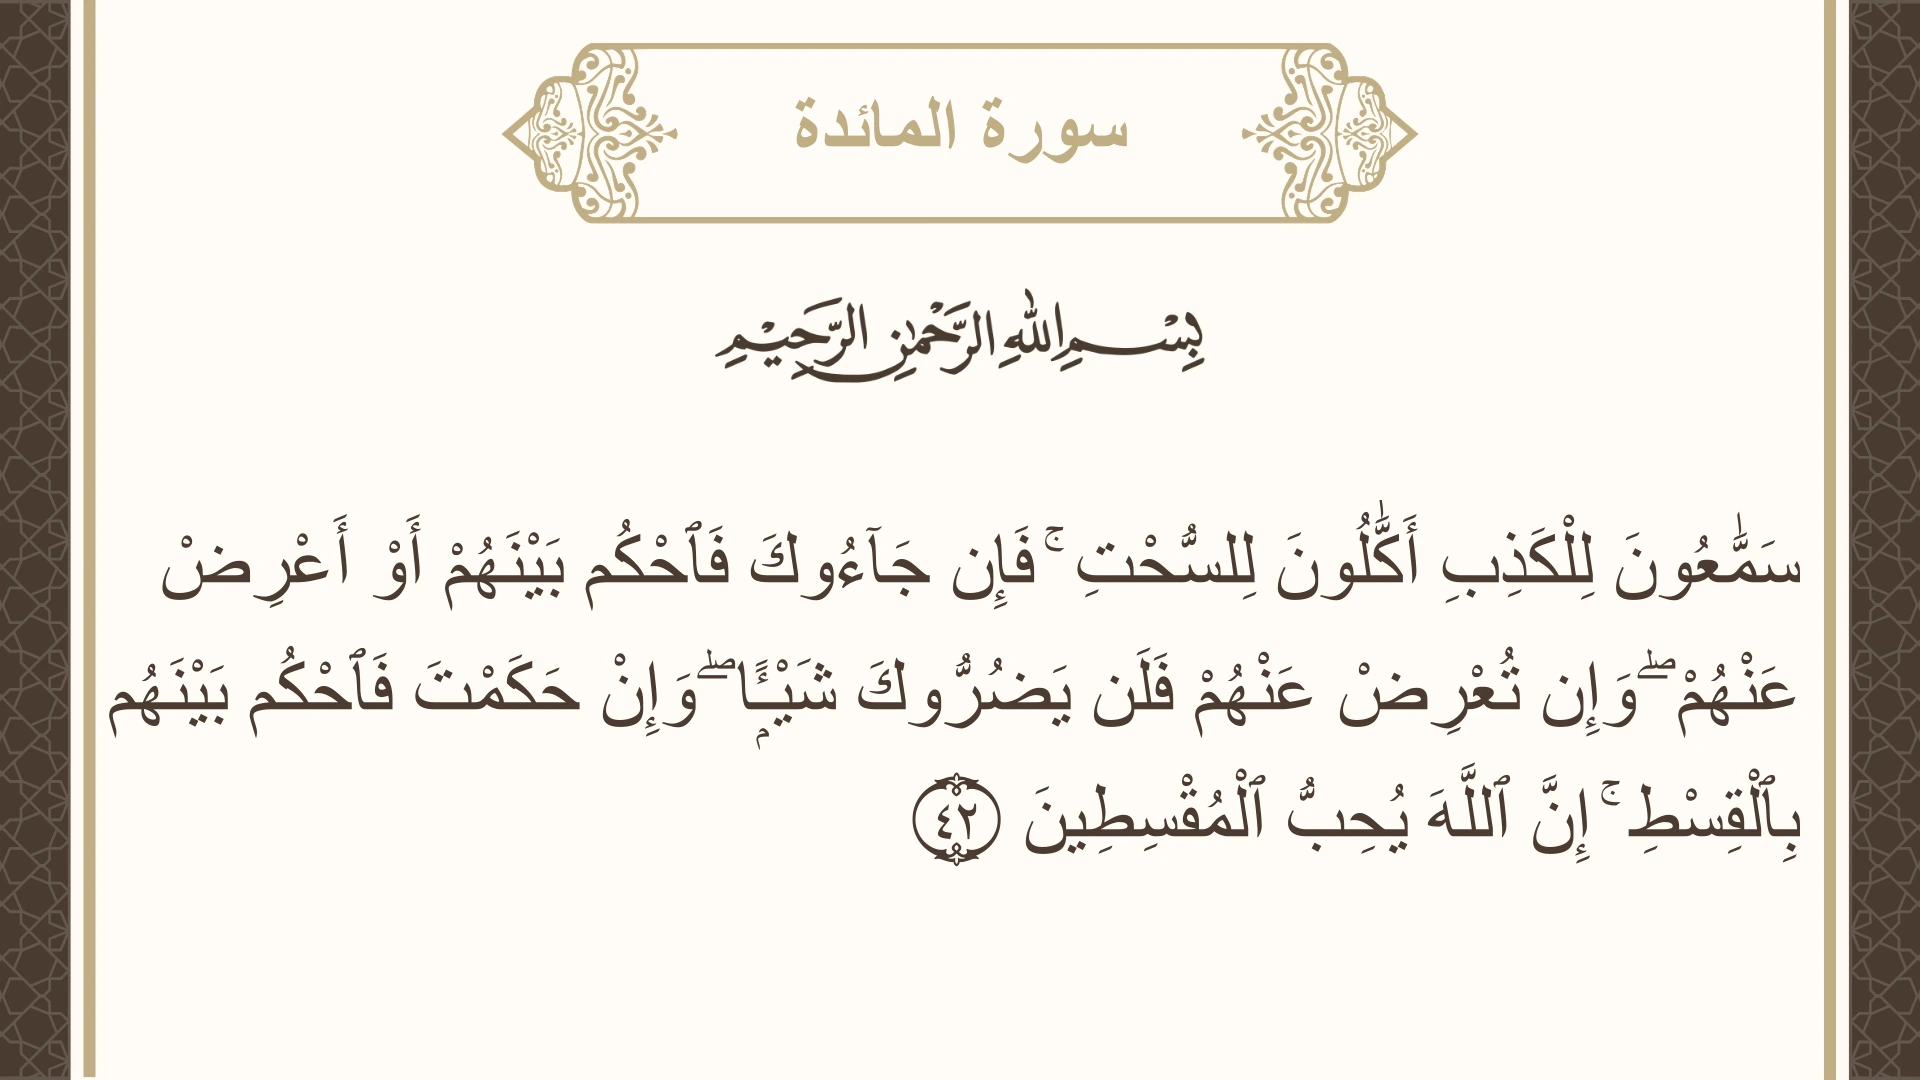 سورة المائدة
بِسْمِ اللَّهِ الرَّحْمَٰنِ الرَّحِيمِ
سَمَّٰعُونَ لِلْكَذِبِ أَكَّٰلُونَ لِلسُّحْتِ ۚ فَإِن جَآءُوكَ فَٱحْكُم بَيْنَهُمْ أَوْ أَعْرِضْ
عَنْهُمْ ۖ وَإِن تُعْرِضْ عَنْهُمْ فَلَن يَضُرُّوكَ شَيْـًۭٔا ۖ وَإِنْ حَكَمْتَ فَٱحْكُم بَيْنَهُم
بِٱلْقِسْطِ ۚ إِنَّ ٱللَّهَ يُحِبُّ ٱلْمُقْسِطِينَ ٤٢